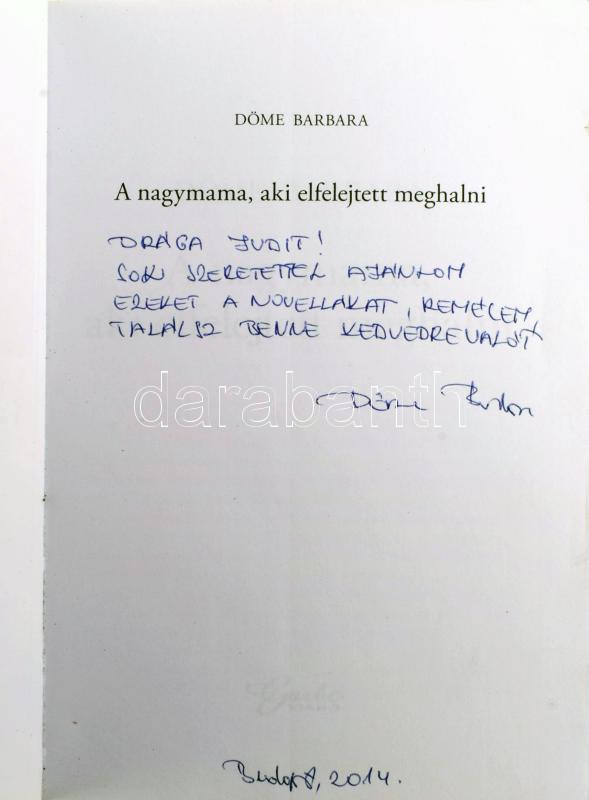 DÖME BARBARA
A nagymama, aki elfelejtett meghalni
DRÁGA JUDIT!
SOK SZERETETTEL AJÁNLOM
EZEKET A NOVELLÁKAT, REMÉLEM,
TALÁLSZ BENNE KEDVEDREVALÓT
darabanth
Döme Barbara
Budapest, 2014.